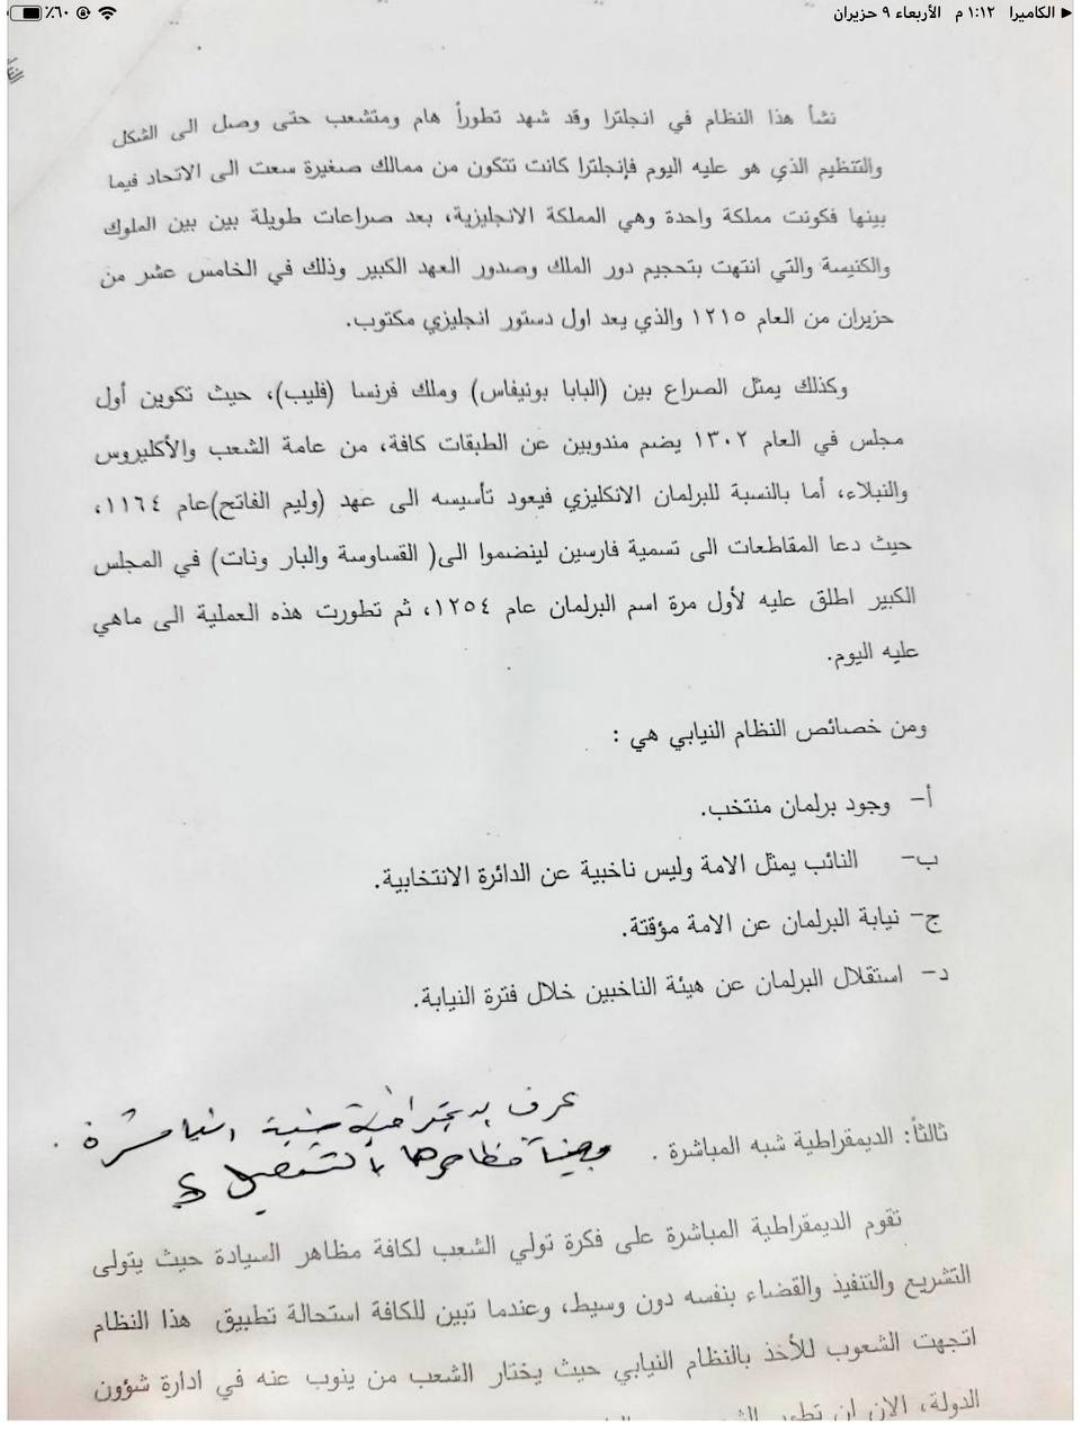 ◀ الكاميرا ١:١٢ م الأربعاء ٩ حزيران
٪٦٠
نشأ هذا النظام في انجلترا وقد شهد تطوراً هام ومتشعب حتى وصل الى الشكل
والتنظيم الذي هو عليه اليوم فإنجلترا كانت تتكون من ممالك صغيرة سعت الى الاتحاد فيما
بينها فكونت مملكة واحدة وهي المملكة الانجليزية، بعد صراعات طويلة بين بين الملوك
والكنيسة والتي انتهت بتحجيم دور الملك وصدور العهد الكبير وذلك في الخامس عشر من
حزيران من العام ١٢١٥ والذي يعد اول دستور انجليزي مكتوب.
وكذلك يمثل الصراع بين (البابا بونيفاس) وملك فرنسا (فليب)، حيث تكوين أول
مجلس في العام ١٣٠٢ يضم مندوبين عن الطبقات كافة، من عامة الشعب والأكليروس
والنبلاء، أما بالنسبة للبرلمان الانكليزي فيعود تأسيسه الى عهد (وليم الفاتح)عام ١١٦٤،
حيث دعا المقاطعات الى تسمية فارسين لينضموا الى( القساوسة والبار ونات) في المجلس
الكبير اطلق عليه لأول مرة اسم البرلمان عام ١٢٥٤، ثم تطورت هذه العملية الى ماهي
عليه اليوم.
ومن خصائص النظام النيابي هي :
أ- وجود برلمان منتخب.
ب- النائب يمثل الامة وليس ناخبية عن الدائرة الانتخابية.
ج- نيابة البرلمان عن الامة مؤقتة.
د- استقلال البرلمان عن هيئة الناخبين خلال فترة النيابة.
عرف
مظاهرها بالتفصيل
ثالثاً: الديمقراطية شبه المباشرة .
تقوم الديمقراطية المباشرة على فكرة تولي الشعب لكافة مظاهر السيادة حيث يتولى
التشريع والتنفيذ والقضاء بنفسه دون وسيط، وعندما تبين للكافة استحالة تطبيق هذا النظام
اتجهت الشعوب للأخذ بالنظام النيابي حيث يختار الشعب من ينوب عنه في ادارة شؤون
الدولة، الان ان